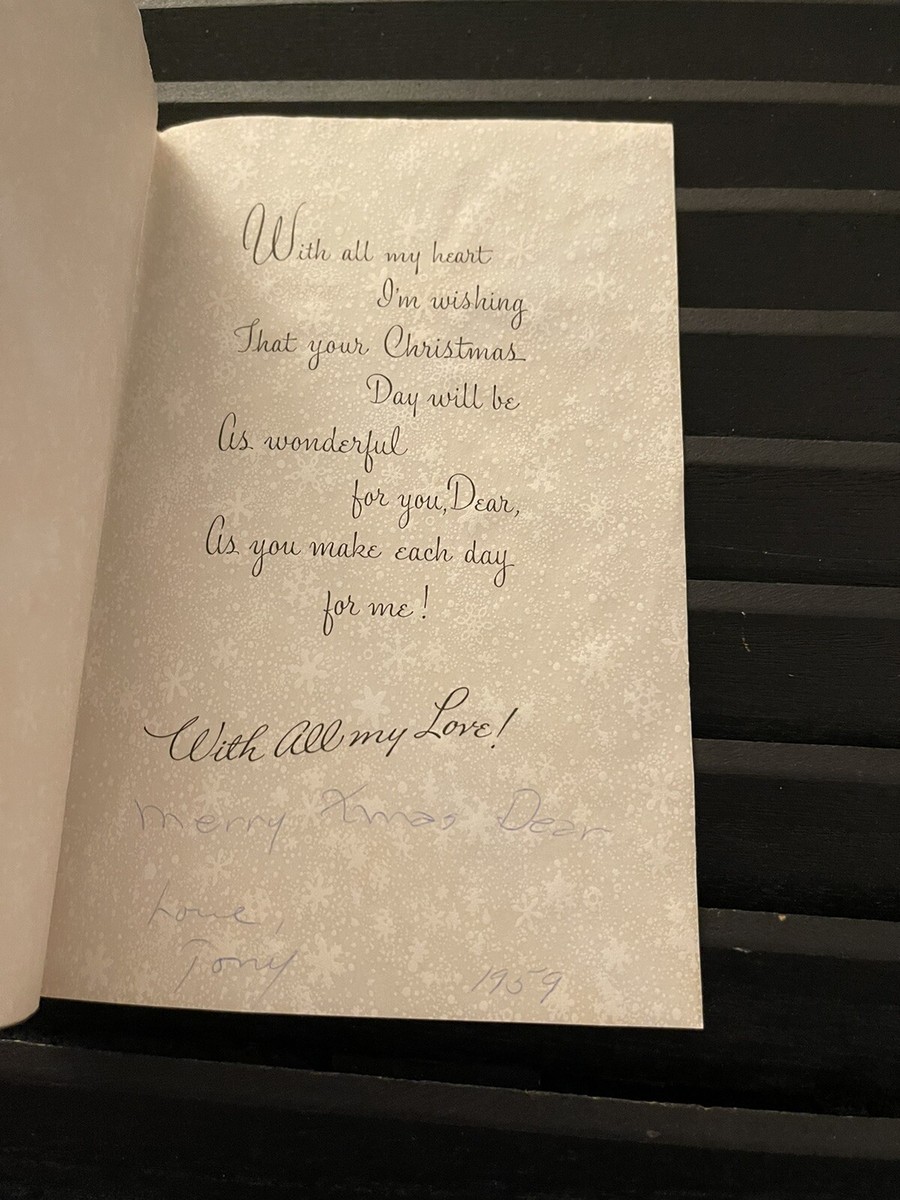 With all my heart
I'm wishing
That your Christmas
Day will be
As wonderful
for you, Dear,
As you make each day
for me!
With All my Love!
Merry Xmas Dear
Love,
Tony
1959